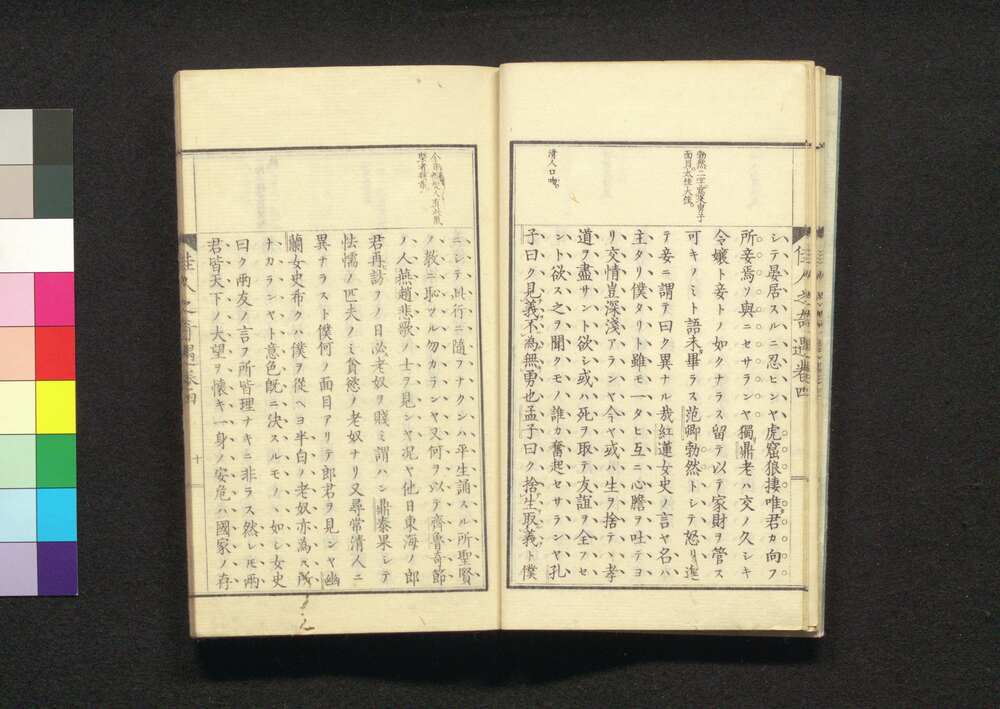 勃然二字寫來男子
面目太佳大佳。
清人口吻。
佳人之奇遇卷四
シテ晏居スルニ忍ヒンヤ虎窟狼捿唯君カ向フ
所妾焉ソ與ニセサランヤ獨鼎老ハ交ノ久シキ
令孃ト妾トノ如クナラス留テ以テ家財ヲ管ス
可キノミト語未畢ラス范卿勃然トシテ怒リ進
テ妾ニ謂テ曰ク異ナル哉紅蓮女史ノ言ヤ名ハ
主タリ僕タリト雖モ一タヒ互ニ心膽ヲ吐テヨ
リ交情豈深淺アランヤ今ヤ或ハ生ヲ捨テヽ孝
道ヲ盡サント欲シ或ハ死ヲ取テ友誼ヲ全フセ
ント欲ス之ヲ聞クモノ誰カ奮起セサランヤ孔
子曰ク見義不為無勇也孟子曰ク捨生取義ト僕
ニシテ此行ニ隨フナクンハ平生誦スル所聖賢
ノ教ニ恥ツル勿カランヤ又何ヲ以テ齊魯奇節
ノ人燕趙悲歌ノ士ヲ見ンヤ况ヤ他日東海ノ郎
君再訪フノ日必老奴ヲ賤ミ謂ハン鼎泰果シテ
怯懦ノ匹夫ノミ貪慾ノ老奴ナリ又尋常清人ニ
異ナラスト僕何ノ面目アリテ郎君ヲ見ンヤ幽
蘭女史希クハ僕ヲ從ヘヨ半白ノ老奴亦為ス所
ナカランヤト意色既ニ決スルモノヽ如シ女史
曰ク兩友ノ言フ所皆理ナキニ非ラス然レ𪜈兩
君皆天下ノ大望ヲ懷キ一身ノ安危ハ國家ノ存
佳人之奇遇卷四
十